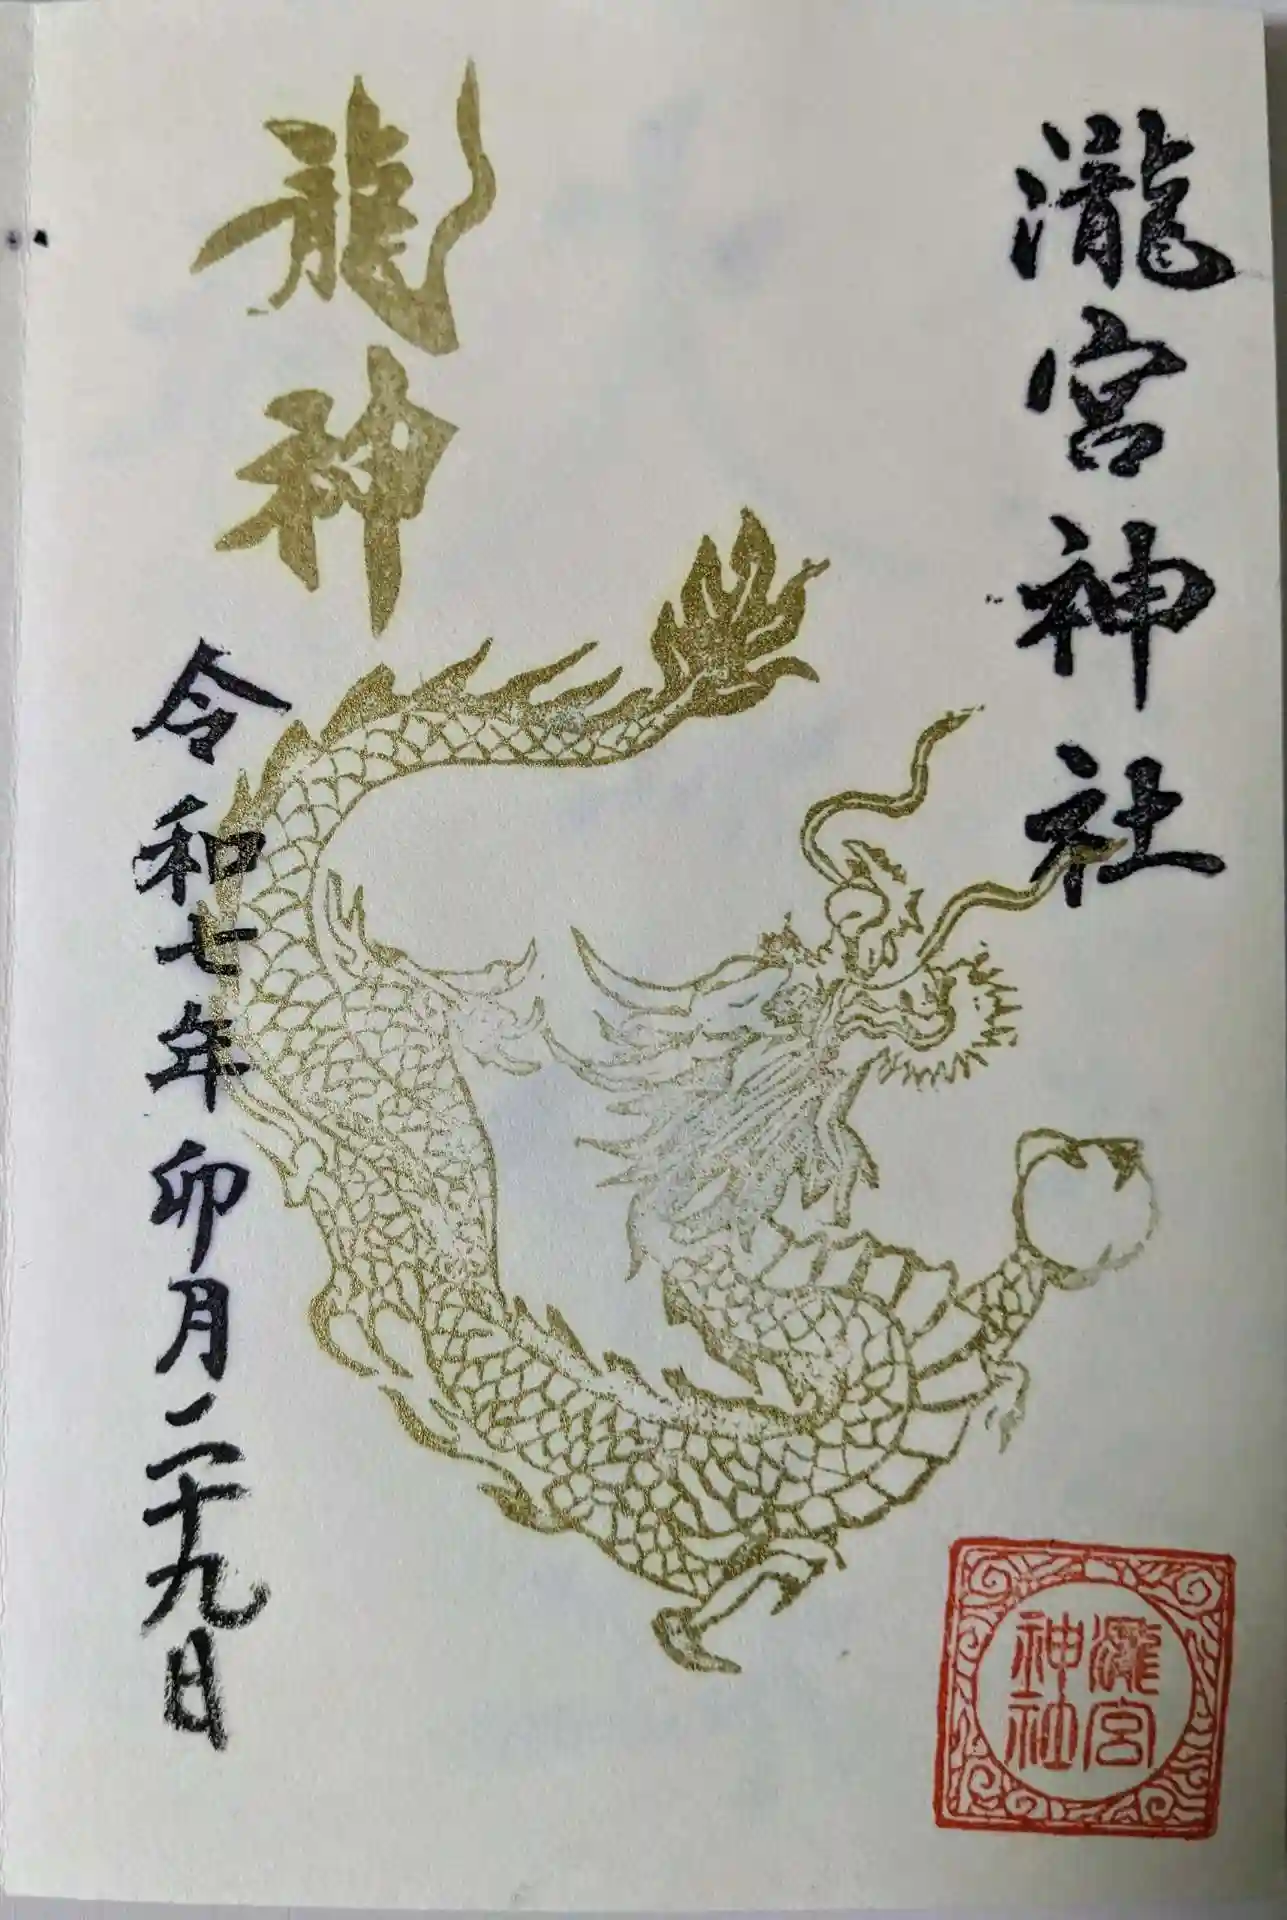 瀧宮神社
龍神
令和七年卯月二十九日
瀧宮
神社